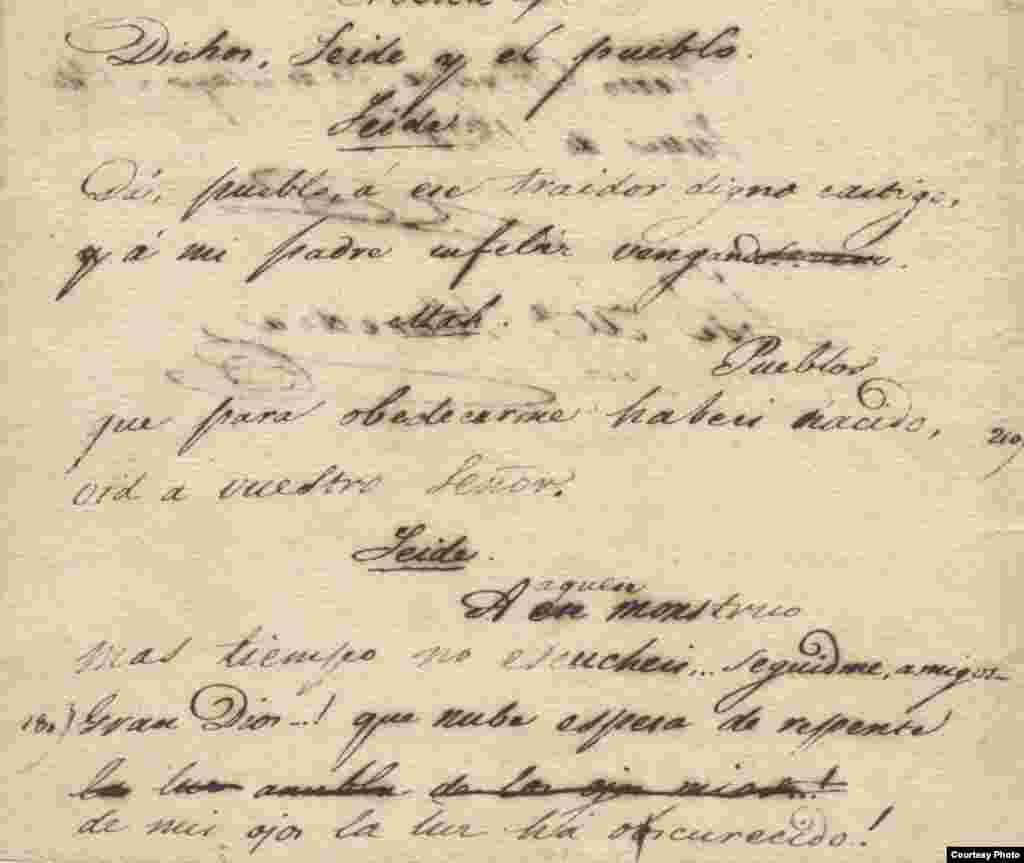 Dichos, Seide y el pueblo.
Seide
Dá, pueblo, á ese traidor digno castigo,
y á mi padre infeliz venga
Mah.
Pueblos
que para obedecerme habeis nacido, 210)
oid a vuestro Señor.
Seide.
aquese
A ese monstruo
mas tiempo no escucheis... seguidme, amigos_
180) Gran Dios...! que nube espesa de repente
la luz de los ojos mios..!
de mis ojos la luz há obscurecido!
Courtesy Photo